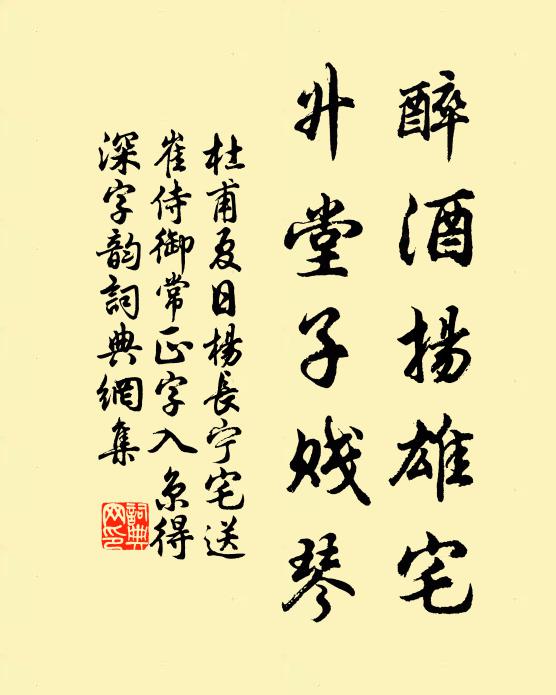 醉酒揚雄宅
升堂子賤琴
杜甫夏日楊長宁宅送
崔侍御常正字入京得
深字韵詞典網集
詞典
网印